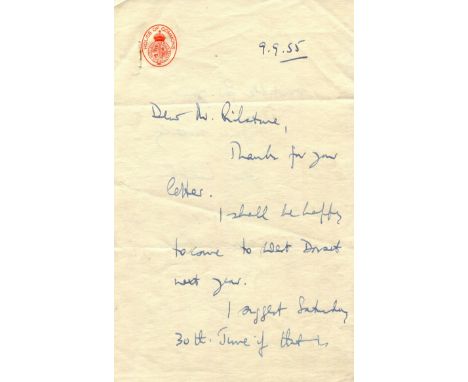 HOUSE OF COMMONS
9.9.55
Dear Mr.
Thanks for your
letter.
I shall be happy
to come to West Dorset
next year.
I suggest Saturday
30th. June if that is